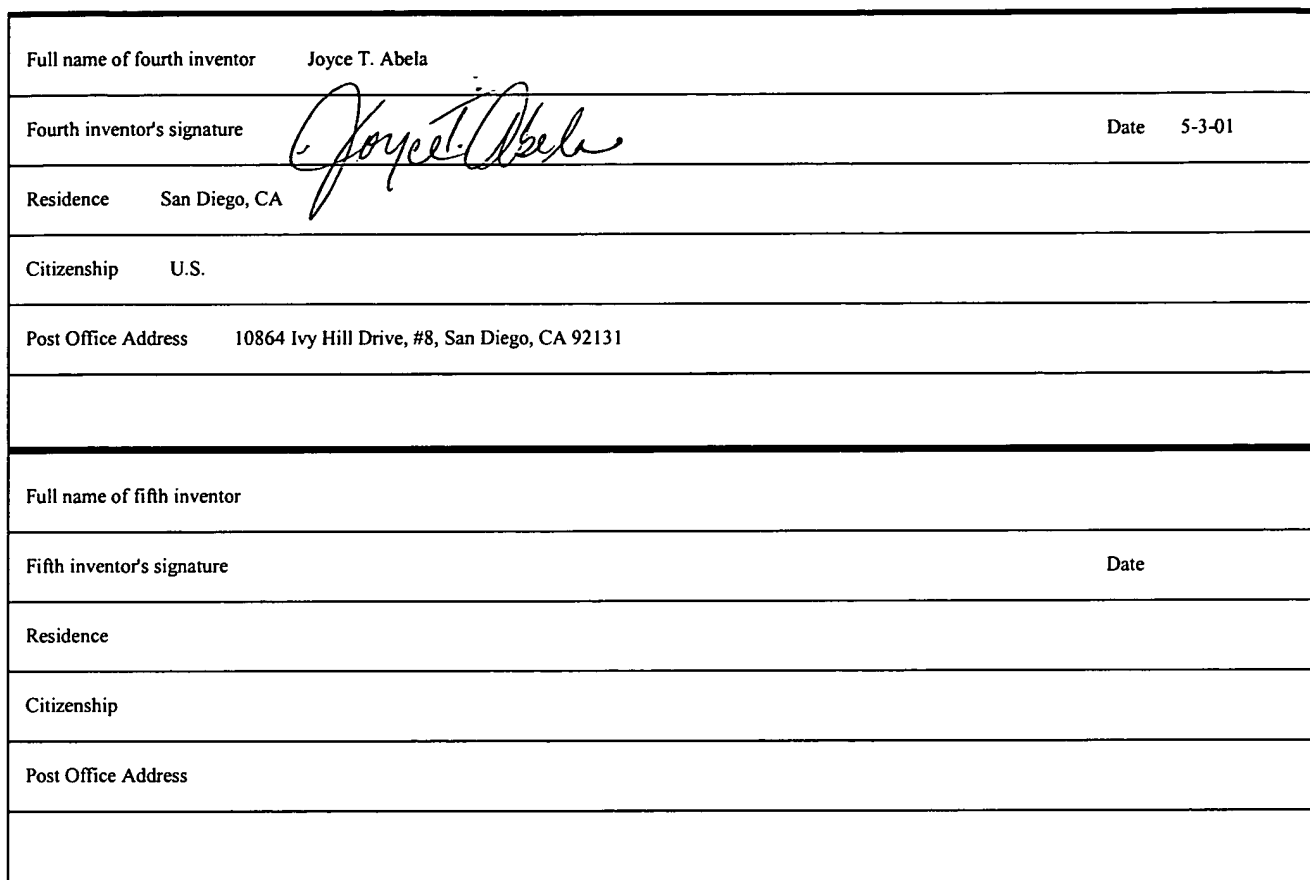 Full name of fourth inventor Joyce T. Abela
Fourth inventor's signature Joyce T. Abela Date 5-3-01
Residence San Diego, CA
Citizenship U.S.
Post Office Address 10864 Ivy Hill Drive, #8, San Diego, CA 92131
Full name of fifth inventor
Fifth inventor's signature Date
Residence
Citizenship
Post Office Address